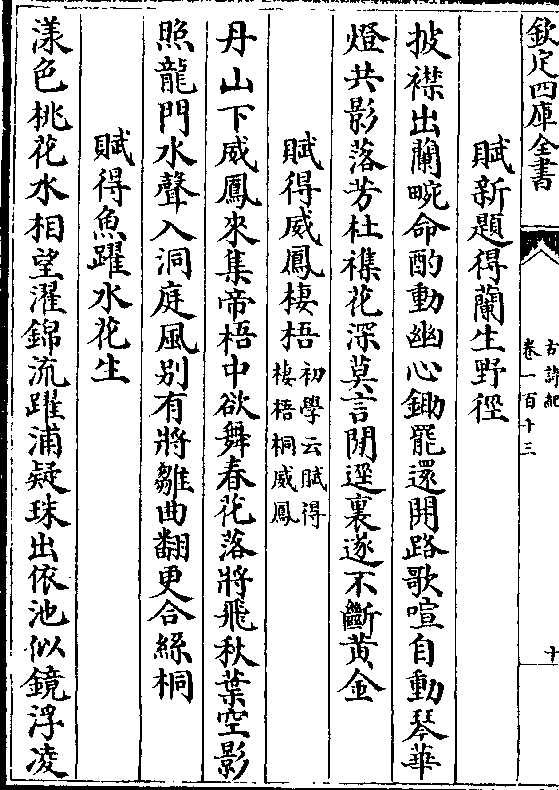 欽定四庫全書
古詩紀
卷一百十三
十
賦新題得蘭生野徑
披襟出蘭畹命酌動幽心鋤罷還開路歌喧自動琴華
燈共影落芳杜襍花深莫言閉逕裏遂不斷黄金
賦得威鳳棲梧
初學云賦得
棲梧桐威鳳
丹山下威鳳來集帝梧中欲舞春花落將飛秋葉空影
照龍門水聲入洞庭風别有將雛曲翻更合絲桐
賦得魚躍水花生
漾色桃花水相望濯錦流躍浦疑珠出依池似鏡浮凌